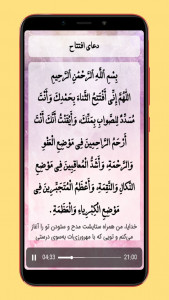 دعای افتتاح
بِسْمِ اللَّهِ الرَّحْمٰنِ الرَّحِيمِ
اللّٰهُمَّ إِنِّى أَفْتَتِحُ الثَّناءَ بِحَمْدِكَ وَأَنْتَ
مُسَدِّدٌ لِلصَّوابِ بِمَنِّكَ، وَأَيْقَنْتُ أَنَّكَ أَنْتَ
أَرْحَمُ الرَّاحِمِينَ فِى مَوْضِعِ الْعَفْوِ
وَالرَّحْمَةِ، وَأَشَدُّ الْمُعاقِبِينَ فِى مَوْضِعِ
النَّكالِ وَالنَّقِمَةِ، وَأَعْظَمُ الْمُتَجَبِّرِينَ فِى
مَوْضِعِ الْكِبْرِياءِ وَالْعَظَمَةِ.
خدایا، من همراه ستایشت مدح و ستودن تو را آغاز
می‌کنم و تویی که با مهرورزی‌ات به‌سوی درستی
04:33
21:00